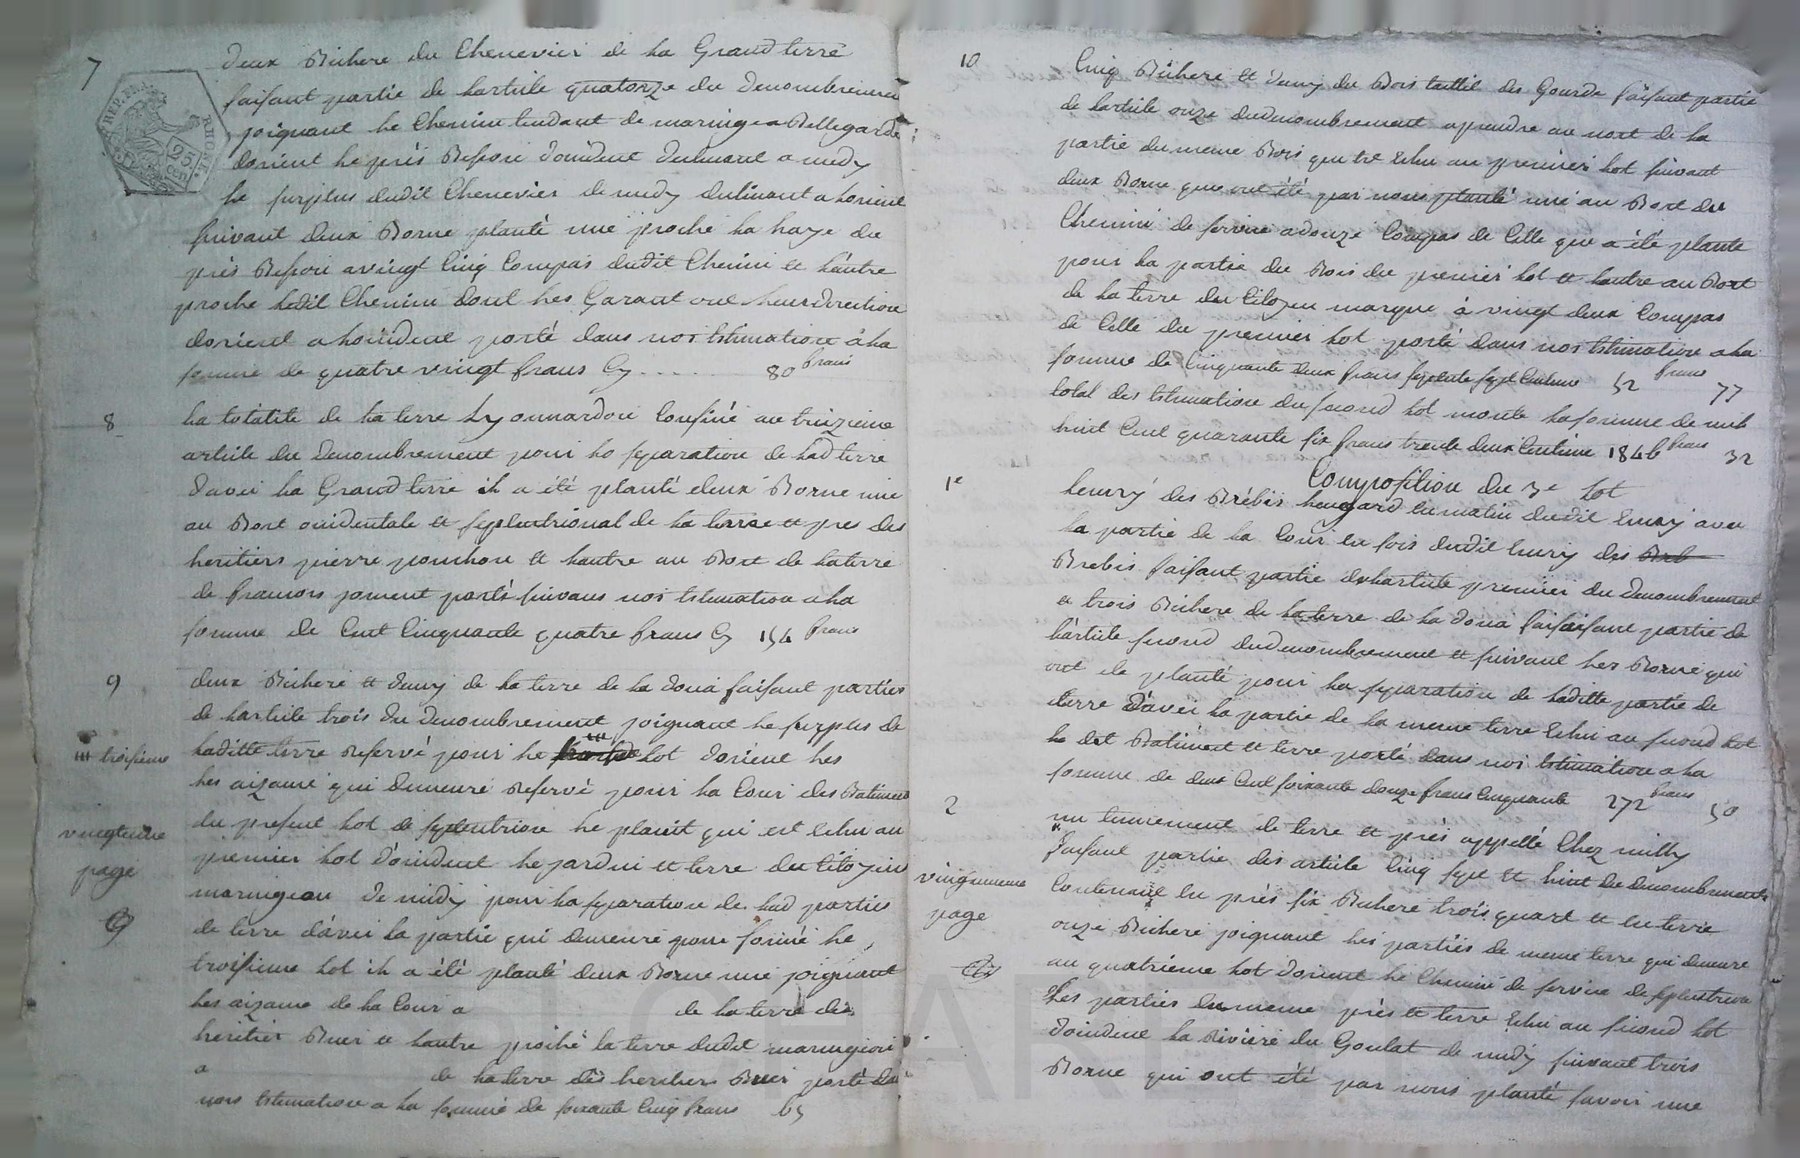 7
REP. FRA. RHONE. 25 CEN
deux Bichere du Chenevier de la Grand terre
faisant partie de larticle quatorze du denombrement
joignant le Chemin tendant de maringe a Bellegarde
dorient le prés Besson doccident dudmont a midy
le surplus dudit Chenevier de midy
suivant deux Borne planté une proche la haye du
prés Besson a vingt Cinq Compas dudit Chemin et lautre
proche ledit Chemin dont les Garant ont leur direction
dorient a hoccident porté dans nos Estimation a la
somme de quatre vingt frans Cy .... 80 frans
8
la totalite de la terre Lyonnardon Confiné au treizieme
article du denombrement pour la separation de lad terre
davec la Grand terre il a été planté deux Borne une
au Bort occidentale et septentrional de la terre et pres des
heritiers pierre ponchon et lautre au Bort de la terre
de francois porté suivans nos Estimation a la
somme de Cent Cinquante quatre frans Cy 154 frans
9
deux Bichere et demy de la terre de la doua faisant parties
de larticle trois du denombrement joignant le surplus de
laditte terre reservé pour le lot dorient les
troisieme
les aizance qui demeure reservé pour la Cour des Batiment
du present lot de septentrion le plassit qui est Echu au
premier lot doccident le jardin et terre du Citoyen
maringeon de midy pour la separation de lad parties
vingtieme
page
de terre davec la partie qui demeure pour formé le
troisieme lot il a été planté deux Borne une joignant
les aizance de la Cour a de la terre des
heritier Buer et lautre proche la terre dudit maringeon
a de la terre des heritiers Buer porté dans
nos Estimation a la somme de soixante Cinq frans 65
10
Cinq Bichere et demy du Bois taillit des Gourde faisant partie
de larticle onze dudenombrement a prendre au nort de la
partie du meme Bois qui est Echu au premier lot suivant
deux Borne que ont été par nous planté une au Bort du
Chemin de service a douze Compas de Celle que a été planté
pour la partie du Bois du premier lot et lautre au Bort
de la terre du Citoyen marque à vingt deux Compas
de Celle du premier lot porté dans nos Estimation a la
somme de Cinquante deux frans septente sept Centime 52 frans 77
total des Estimation du second lot monte la somme de mil
huit Cent quarante six frans trente deux Centime 1846 frans 32
Composition du 3e lot
1e
lecury des Brebis hengard du matin dudit Ecury avec
la partie de la Cour en fois dudit Ecury des Breb
Brebis faisant partie de larticle premier du denombrement
et trois Bichere de la terre de la doua faisaifant partie de
larticle second dudenombrement et suivant les Borne qui
ont ete planté pour la separation de laditte partie de
terre davec la partie de la meme terre Echu au second lot
le dit Batiment et terre porté dans nos Estimation a la
somme de deux Cent soixante douze frans Cinquante 272 frans 50
2
un tennement de terre et près appellé Chez milly
faisant partie des article Cinq sept et huit du denombrement
Contenant en près six Bichere trois quart et en terre
vingunieme
page
onze Bichere joignant les parties de meme terre qui demeure
au quatrieme lot dorient le Chemin de service de septentrion
les parties du meme près et terre Echu au second lot
doccident la Riviere du Goulat de midy suivant trois
Borne qui ont été par nous planté savoir une
GHARAVAY